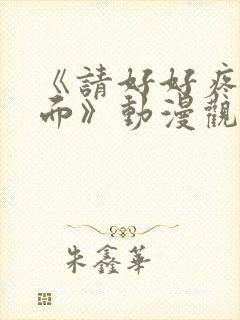 《請好好疼
而》動漫觀
朱鑫華